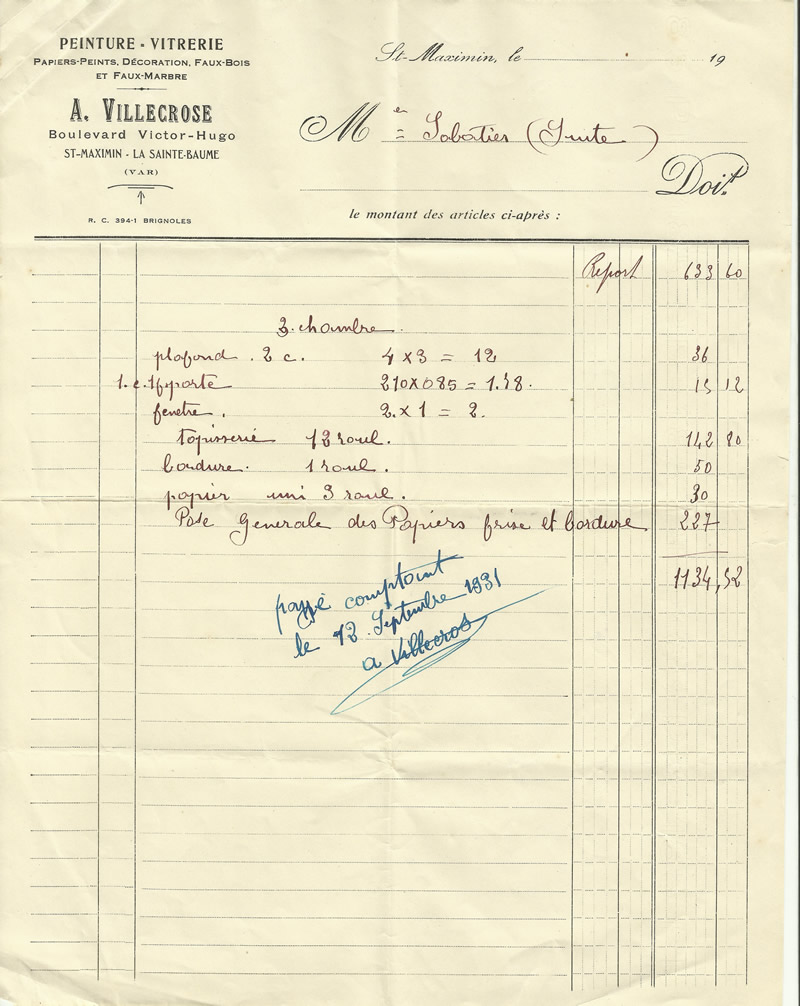 PEINTURE - VITRERIE
PAPIERS-PEINTS, DÉCORATION, FAUX-BOIS
ET FAUX-MARBRE
A. VILLECROSE
Boulevard Victor-Hugo
ST-MAXIMIN - LA SAINTE-BAUME
(VAR)
R. C. 394-1 BRIGNOLES
St-Maximin, le 19
M Sabatier (Suite)
Doit
le montant des articles ci-après :
Report 633 60
3. chambre.
plafond . 2 c. 4 x 3 = 12 36
1. c. porte 210 x 085 = 1.78. 15 12
fenetre . 2. x 1 = 2.
tapisserie 12 roul. 142 80
bordure. 1 roul. 50
papier uni 3 roul. 30
Pose Generale des Papiers frise et bordure 227
1134,52
payé comptant
le 12 Septembre 1931
a Villecros